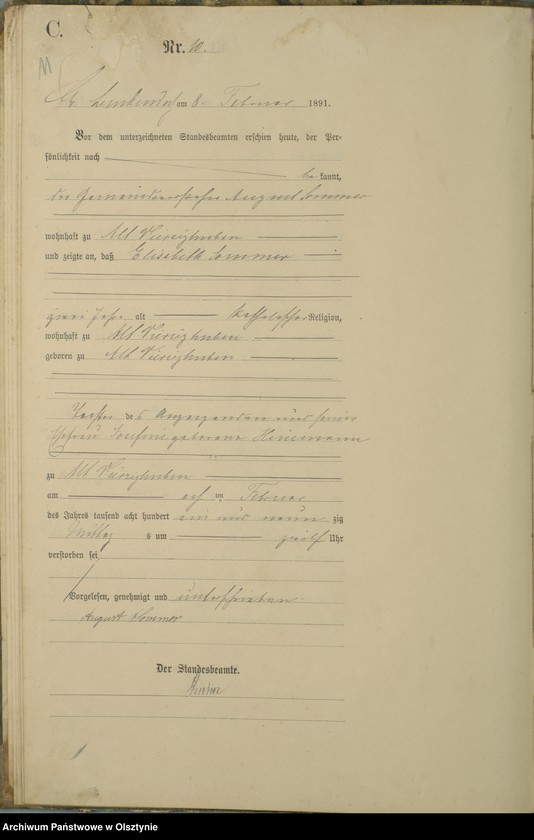 C.
Nr. 10.
am 8. Februar 1891.
Vor dem unterzeichneten Standesbeamten erschien heute, der Per-
sönlichkeit nach
be kannt,
der Gemeindevorsteher August Sommer
wohnhaft zu Alt Vierzighuben
und zeigte an, daß Elisabeth Sommer
zwei Jahre alt katholischer Religion,
wohnhaft zu Alt Vierzighuben
geboren zu Alt Vierzighuben
Tochter des Anzeigenden und seiner
Ehefrau Josefine geborene Heinemann
zu Alt Vierzighuben
am ten Februar
des Jahres tausend acht hundert ein und neun zig
Mittag s um zwölf Uhr
verstorben sei
Vorgelesen, genehmigt und unterschrieben
August Sommer
Der Standesbeamte.
Archiwum Państwowe w Olsztynie